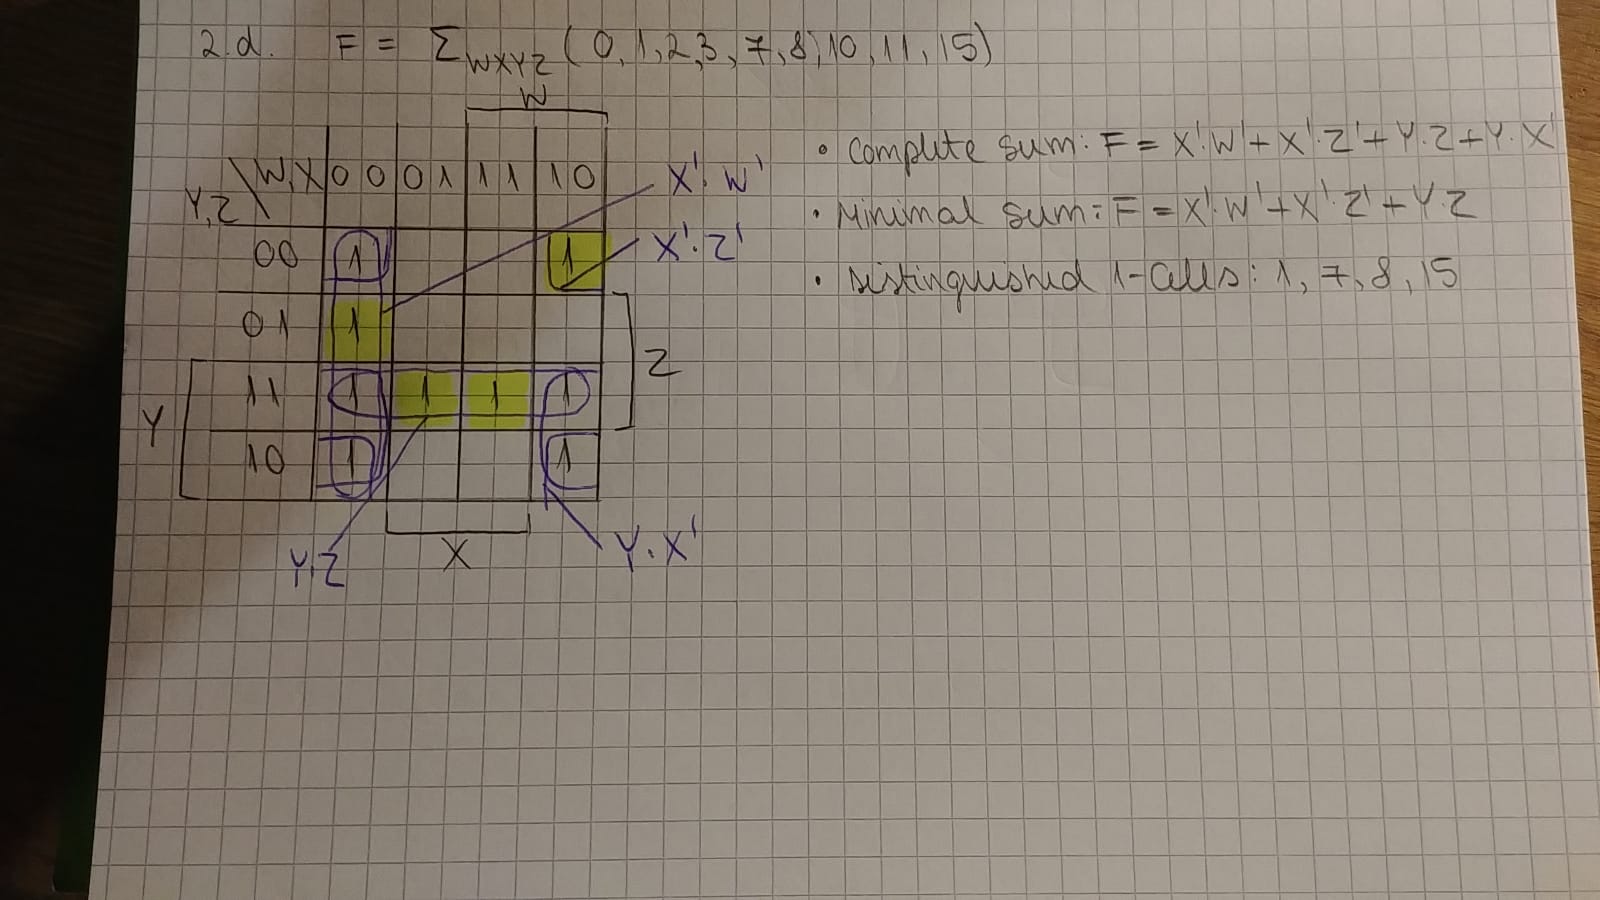 2.d. F = Σ WXYZ (0, 1, 2, 3, 7, 8, 10, 11, 15)
W
W,X 00 01 11 10
Y,Z
X'·W'
X'·Z'
00 1 1
01 1
11 1 1 1 1
10 1
1
Y
Z
X
Y·Z
Y·X'
• Complete sum: F = X'·W' + X'·Z' + Y·Z + Y·X'
• Minimal sum: F = X'·W' + X'·Z' + Y·Z
• Distinguished 1-cells: 1, 7, 8, 15